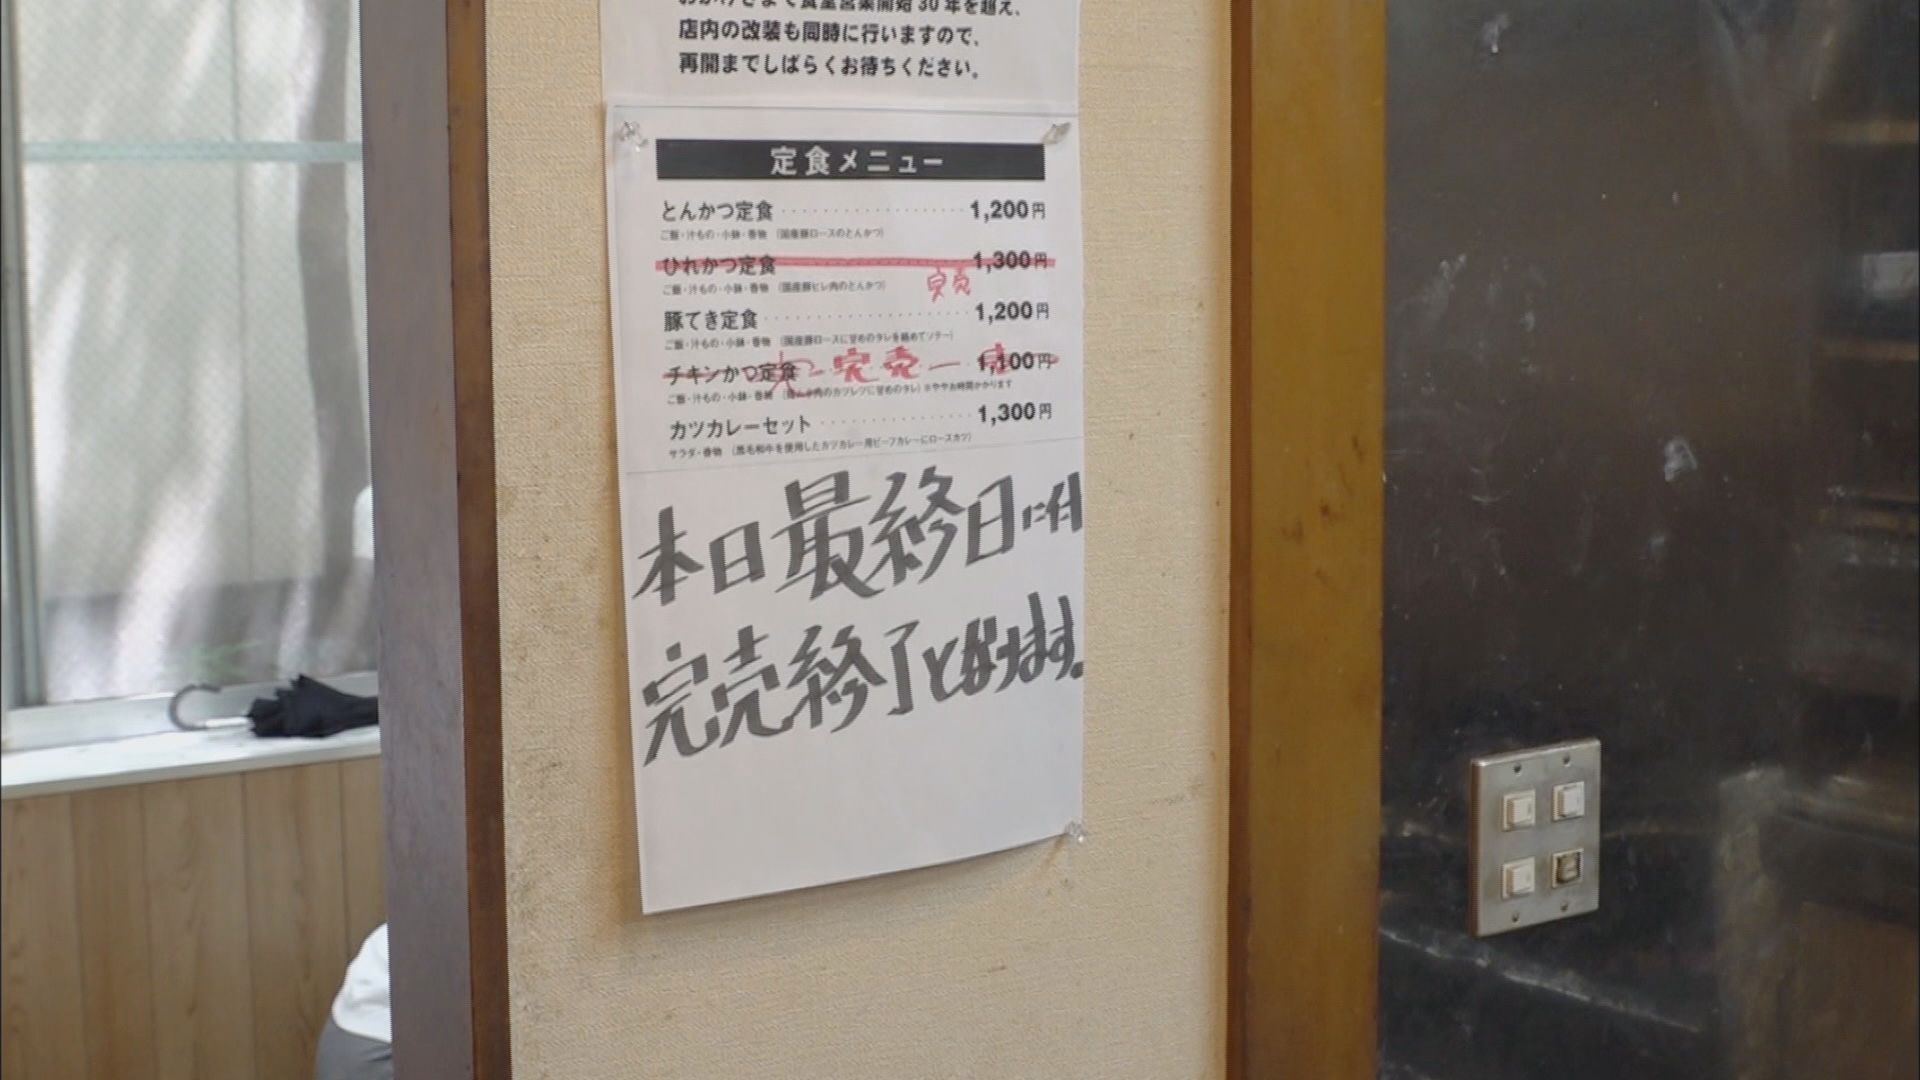 おかげさまで食堂営業開始30年を超え、
店内の改装も同時に行いますので、
再開までしばらくお待ちください。
定食メニュー
とんかつ定食 1,200円
ご飯・汁もの・小鉢・香物 (国産豚ロースのとんかつ)
ひれかつ定食 1,300円
完売
ご飯・汁もの・小鉢・香物 (国産豚ヒレ肉のとんかつ)
豚てき定食 1,200円
ご飯・汁もの・小鉢・香物 (国産豚ロースに甘めのタレを絡めてソテー)
チキンかつ定食 完売 1,100円
ご飯・汁もの・小鉢・香物 肉のカツレツに甘めのタレ) ※ややお時間かかります
カツカレーセット 1,300円
サラダ・香物 (黒毛和牛を使用したカツカレー用ビーフカレーにロースカツ)
本日最終日に付
完売終了となります。